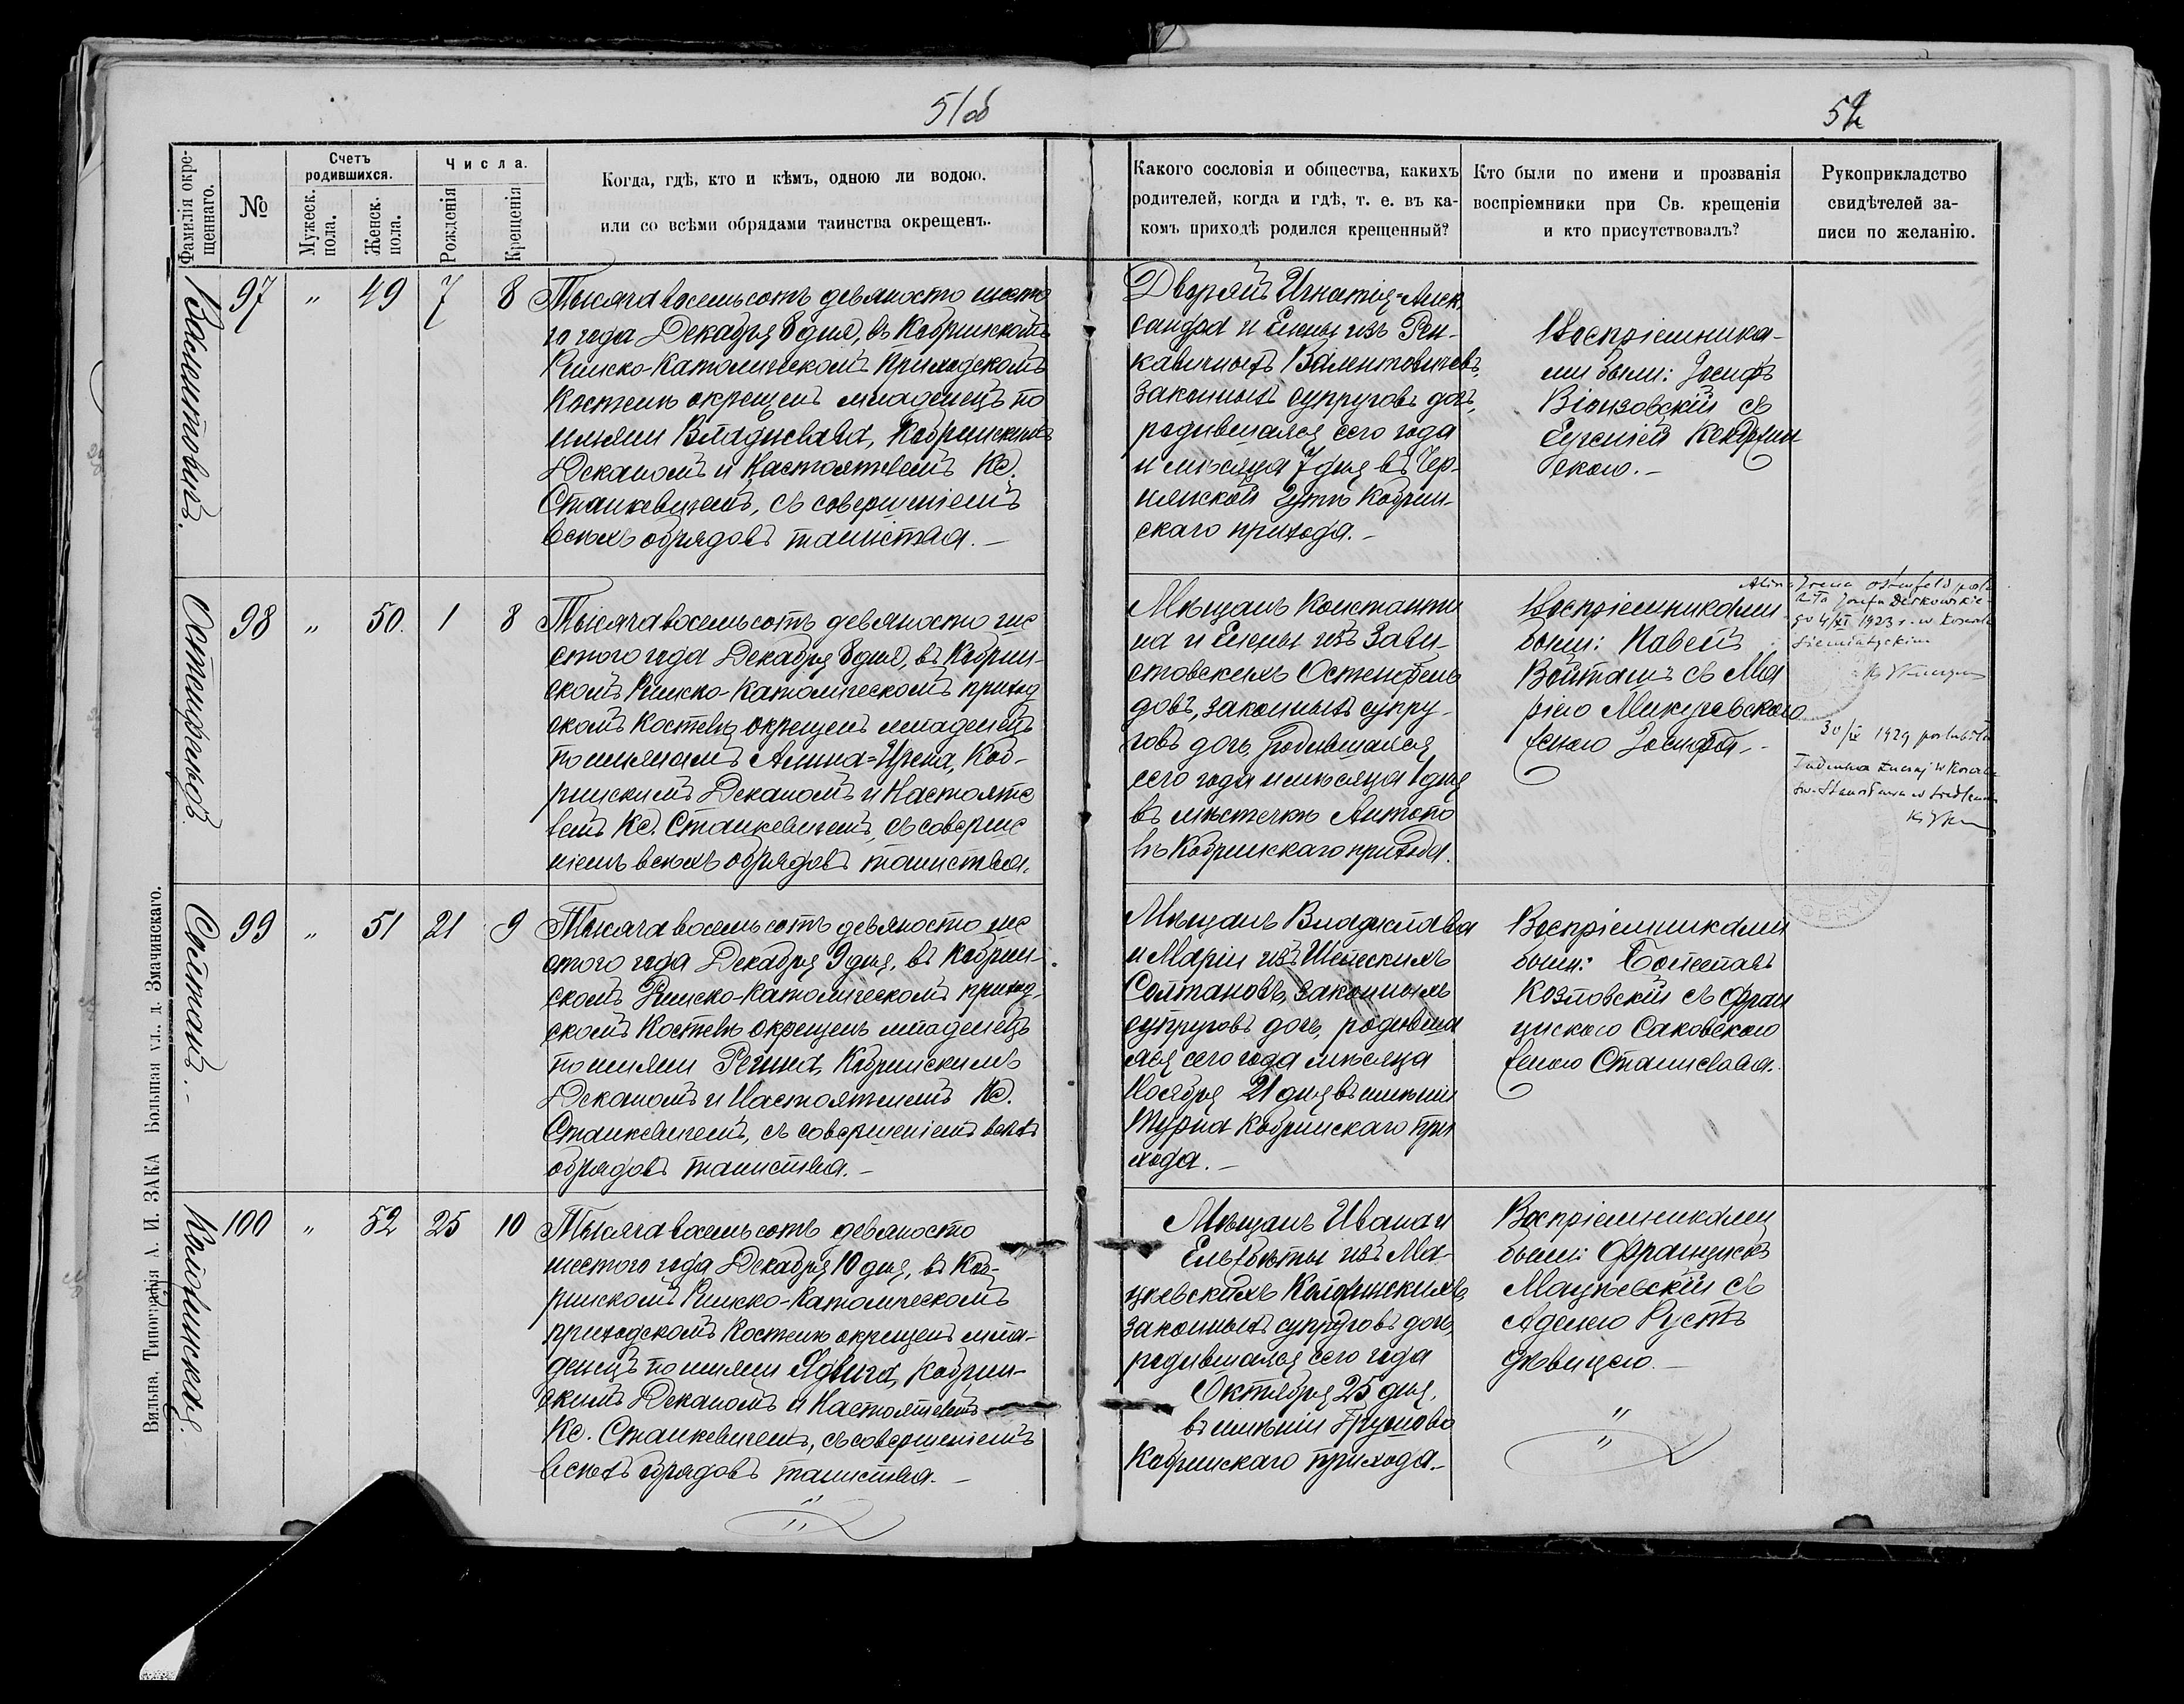 51об
52
Фамилія окре-
щеннаго.
№
Счетъ
родившихся.
Мужеск.
пола.
Женск.
пола.
Числа.
Рожденія
Крещенія
Когда, гдѣ, кто и кѣмъ, одною ли водою.
или со всѣми обрядами таинства окрещенъ.
Какого сословія и общества, какихъ
родителей, когда и гдѣ, т. е. въ ка-
комъ приходѣ родился крещенный?
Кто были по имени и прозванія
воспріемники при Св. крещеніи
и кто присутствовалъ?
Рукоприкладство
свидѣтелей за-
писи по желанію.
97 " 49 7 8
Тысяча восемьсотъ девяносто шесто
го года Декабря 8 дня, въ Кобринскомъ
Римско-Католическомъ Приходскомъ
Костелѣ окрещенъ младенецъ по
имени Владислава, Кобринскимъ
Деканомъ и Настоятелемъ Кс.
Станкевичемъ, съ совершеніемъ
всѣхъ обрядовъ таинства.-
Дворянъ Игнатія-Алек
сандра и Елены изъ
законныхъ супруговъ дочь,
родившаяся сего года
и мѣсяца 7 дня въ Чер-
нянской Гутѣ Кобрин-
скаго прихода.-
Воспріемника-
ми были: Іосифъ
съ
Евгеніей
Остенфельдъ.
98 " 50. 1 8
Тысяча восемьсотъ девяносто ше
стого года Декабря 8 дня, въ Кобрин-
скомъ Римско-Католическомъ приход
скомъ Костелѣ окрещенъ младенецъ
по именамъ Алина=Ирена, Коб-
ринскимъ Деканомъ и Настояте
лемъ Кс. Станкевичемъ, съ соверше
ніемъ всѣхъ обрядовъ таинства.
Мѣщанъ Константи
на и Елены изъ Зави-
стовскихъ Остенфель
довъ, законныхъ супру-
говъ дочь, родившаяся
сего года и мѣсяца 1 дня
въ мѣстечкѣ Антопо
лѣ Кобринскаго прихода.
Воспріемниками
были: Павелъ
Войташъ съ Ма
ріею Микулевскою
женою Іосифа.-
Alina Irena Ostenfeld poślu
biła Józefa
go 4/XI 1923 r. w
30/IX 1929 poślubiła
Сольтанъ.-
99 " 51 21 9
Тысяча восемьсотъ девяносто ше
стого года Декабря 9 дня, въ Кобрин-
скомъ Римско-Католическомъ приход
скомъ Костелѣ окрещенъ младенецъ
по имени Регина, Кобринскимъ
Деканомъ и Настоятелемъ Кс.
Станкевичемъ, съ совершеніемъ всѣхъ
обрядовъ таинства.-
Мѣщанъ Владислава
и Маріи изъ
Солтановъ, законныхъ
супруговъ дочь, родивша
яся сего года мѣсяца
Ноября 21 дня въ имѣніи
Турна Кобринскаго при
хода.-
Воспріемниками
были: Болеславъ
Козловскій съ Фран
цискою Саковскою
женою Станислава.
100 " 52 25 10
Тысяча восемьсотъ девяносто
шестого года Декабря 10 дня, въ Коб-
ринскомъ Римско-Католическомъ
приходскомъ Костелѣ окрещенъ мла-
денецъ по имени Ядвига, Кобрин-
скимъ Деканомъ и Настоятелемъ
Кс. Станкевичемъ, съ совершеніемъ
всѣхъ обрядовъ таинства.-
Мѣщанъ Ивана и
Ельжбѣты изъ Ма-
цѣевскихъ
законныхъ супруговъ дочь,
родившаяся сего года
Октября 25 дня,
въ имѣніи Грушово
Кобринскаго прихода.-
Воспріемниками
были: Францискъ
Мацѣевскій съ
Аделею Русть
дѣвицею.-
Вильна. Типографія А. И. ЗАКА Большая ул., д. Змачинскаго.